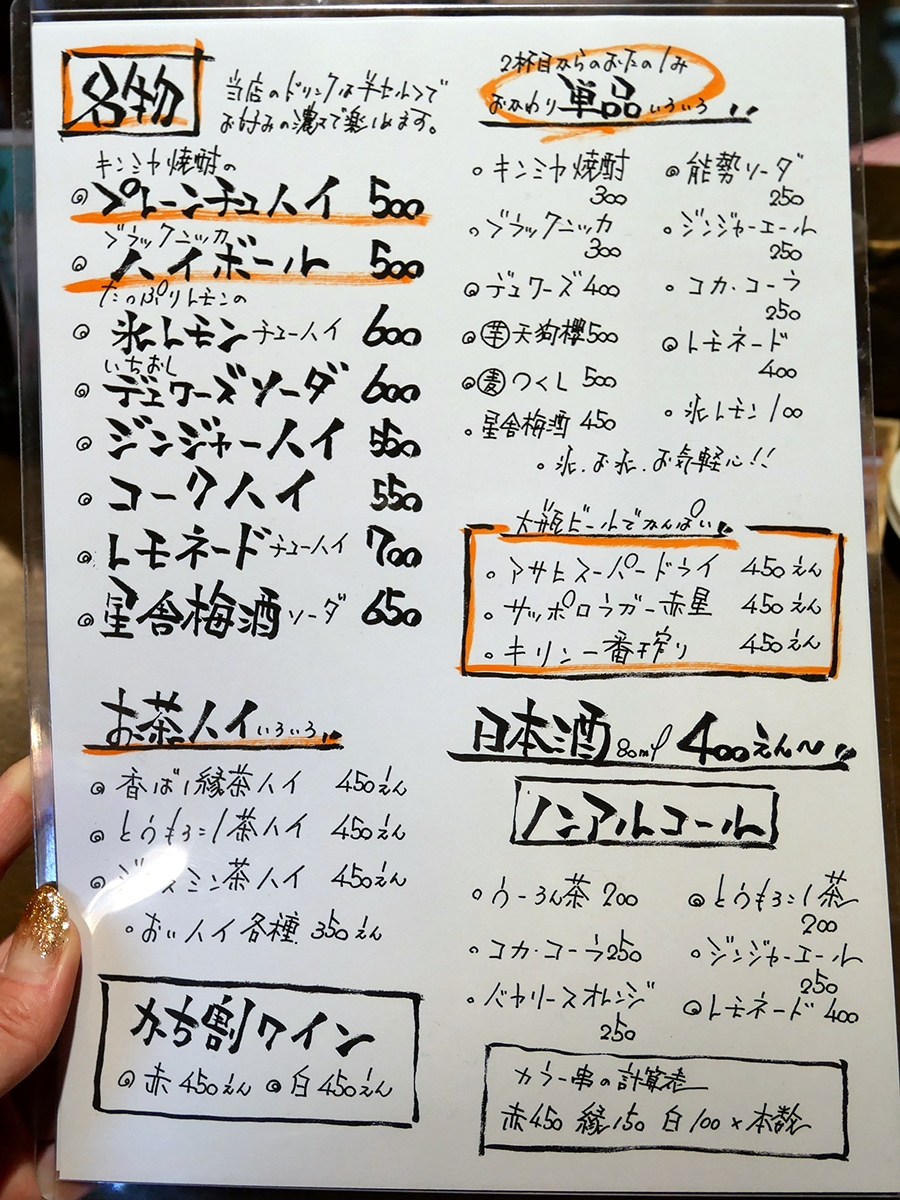 名物
当店のドリンクは半セルフで
お好みの濃さで楽しめます。
キンミヤ焼酎の
プレーンチュハイ 500
ブラックニッカ
ハイボール 500
たっぷりレモンの
氷レモンチューハイ 600
いちおし
デュワーズソーダ 600
ジンジャーハイ 550
コークハイ 550
レモネードチューハイ 700
星舎梅酒ソーダ 650
お茶ハイいろいろ
香ばし緑茶ハイ 450えん
とうもろこし茶ハイ 450えん
ジャスミン茶ハイ 450えん
ハイ各種 350えん
かち割ワイン
赤 450えん 白 450えん
2杯目からのおたのしみ
おかわり単品いろいろ
キンミヤ焼酎
300
ブラックニッカ
300
デュワーズ 400
芋 天狗櫻 500
麦 つくし 500
星舎梅酒 450
能勢ソーダ
250
ジンジャーエール
250
コカ・コーラ
250
レモネード
400
氷レモン 100
氷、お水、お気軽に!!
大瓶ビールでかんぱい
アサヒスーパードライ 450えん
サッポロラガー赤星 450えん
キリン一番搾り 450えん
日本酒 80ml 400えん〜
ノンアルコール
うーろん茶 200
コカ・コーラ 250
バヤリースオレンジ
250
とうもろこし茶
200
ジンジャーエール
250
レモネード 400
カラー串の計算表
赤450 緑150 白100×本数